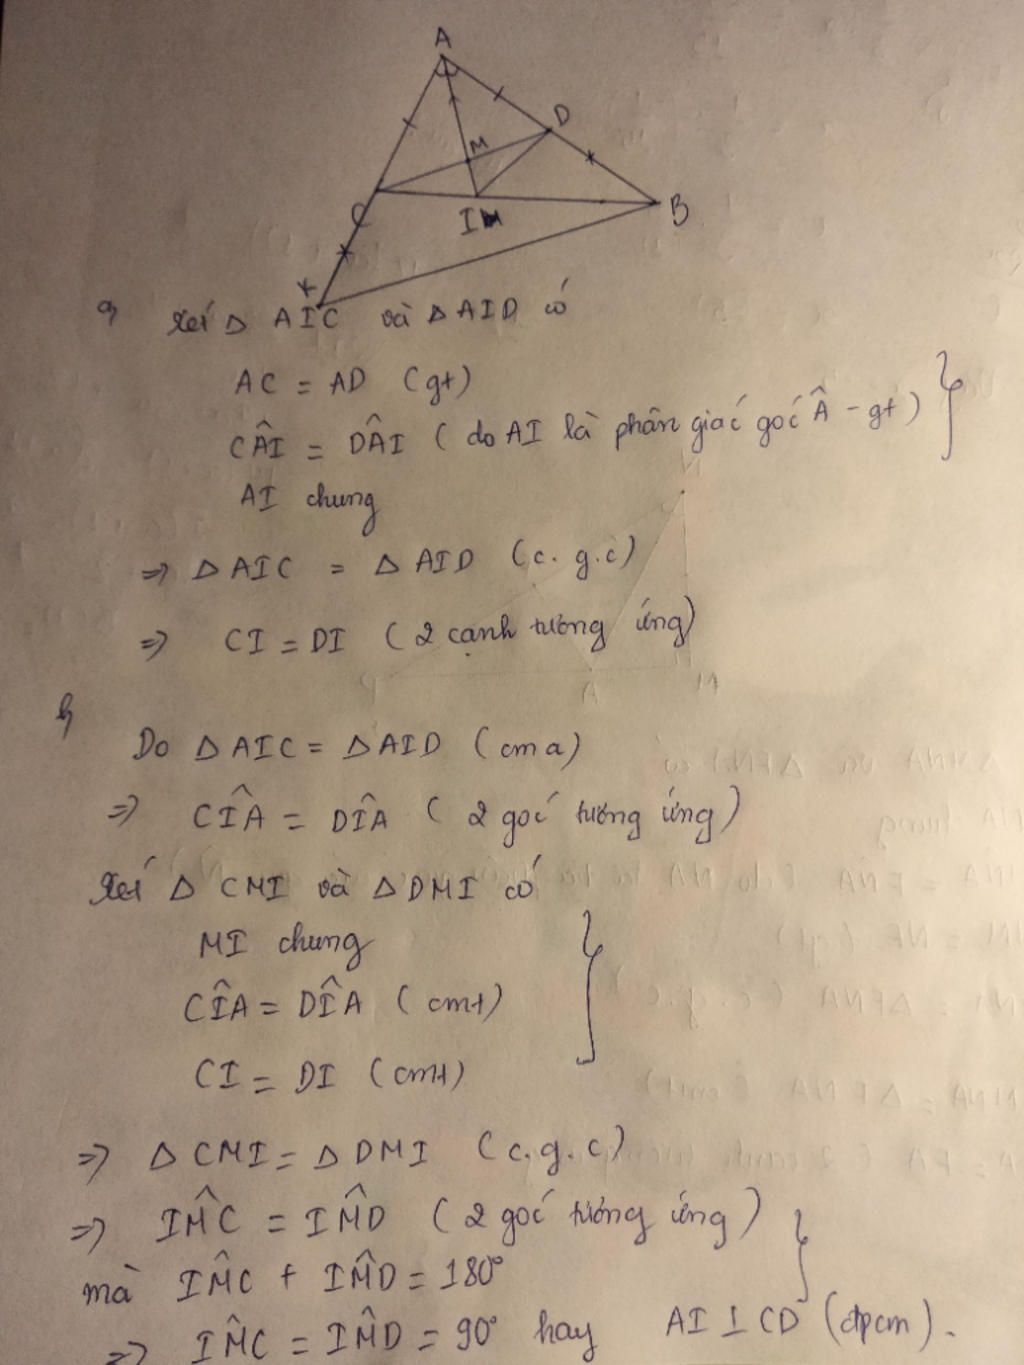 A
D
M
C
I
B
K
a, Xét Δ AIC và Δ AID có
AC = AD (gt)
CÂI = DÂI ( do AI là phân giác góc Â - gt)
AI chung
=> Δ AIC = Δ AID (c.g.c)
=> CI = DI ( 2 cạnh tương ứng)
b,
Do Δ AIC = Δ AID (cm a)
=> CÎA = DÎA ( 2 góc tương ứng)
Xét Δ CMI và Δ DMI có
MI chung
CÎA = DÎA ( cmt)
CI = DI (cmt)
=> Δ CMI = Δ DMI (c.g.c)
=> IM̂C = IM̂D ( 2 góc tương ứng)
mà IM̂C + IM̂D = 180°
=> IM̂C = IM̂D = 90° hay AI ⊥ CD (đpcm).